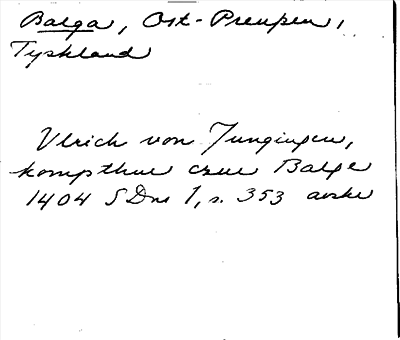 Balga, Ost-Preussen,
Tyskland
Ulrich von Jungingen,
kompthur czur Balge
1404 SDns 1, s. 353 avskr